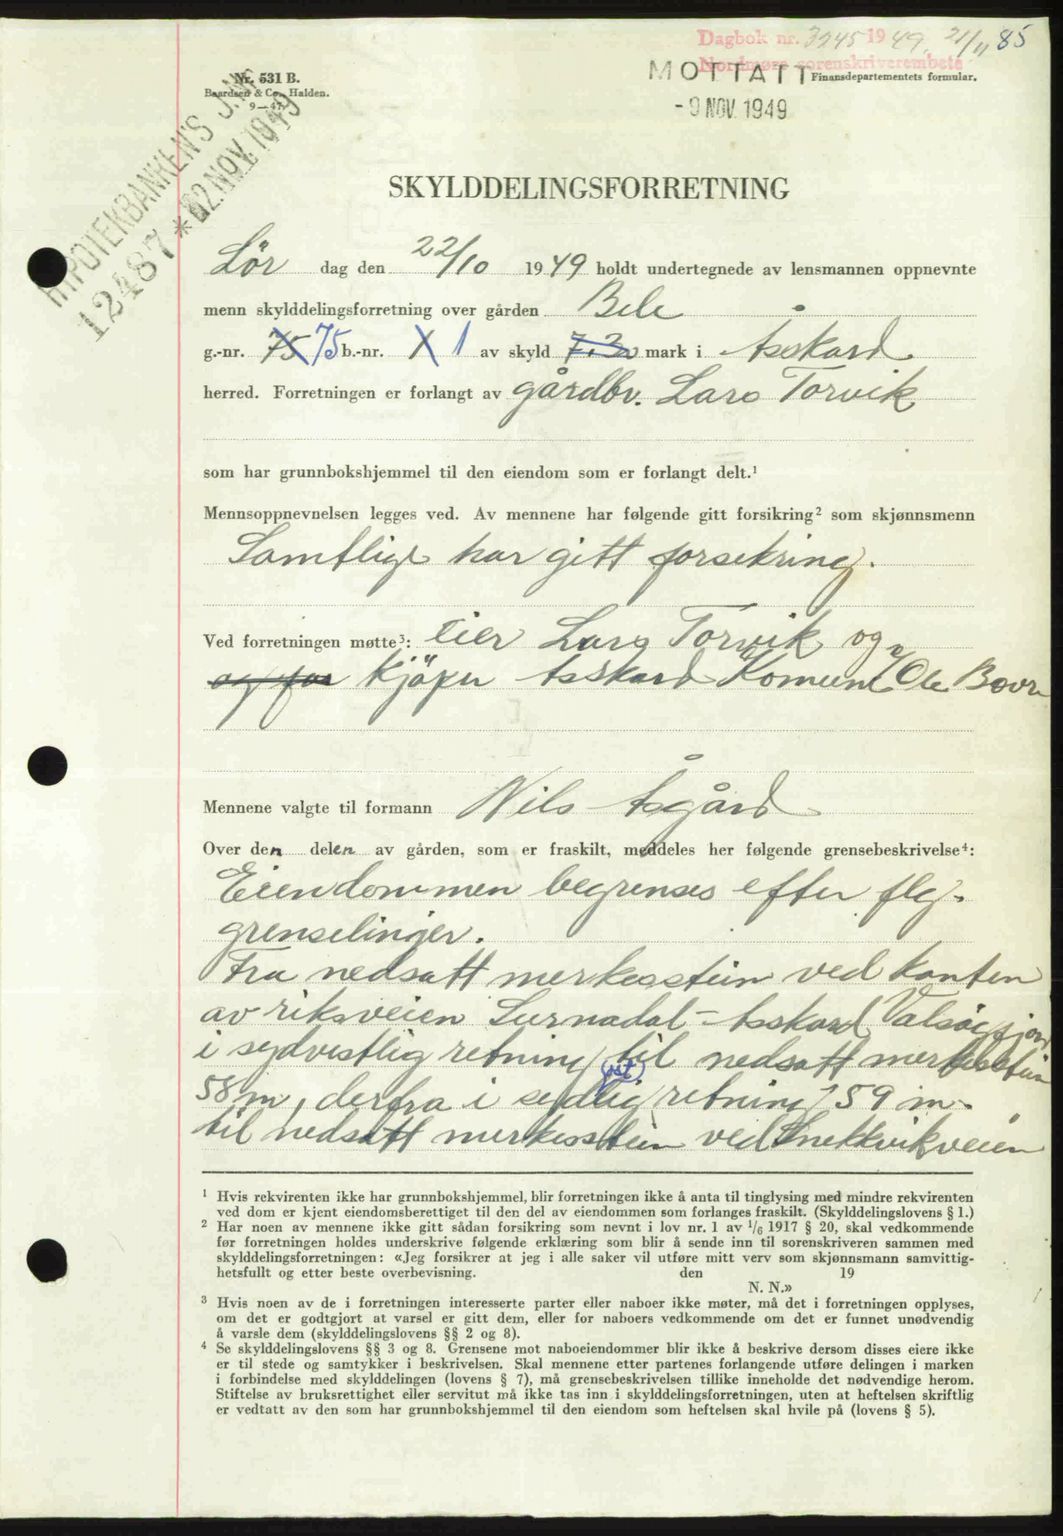 Dagbok nr. 3245 1949. 21/11 85
Nordmøre sorenskriverembete
Nr. 531 B.
Baardsen & Co., Halden.
9—47
MOTTATT
Finansdepartementets formular.
- 9 NOV. 1949
HYPOTEKBANKEN'S J.NR
12487 * 02.NOV.1949
SKYLDDELINGSFORRETNING
Lör dag den 22/10 1949 holdt undertegnede av lensmannen oppnevnte
menn skylddelingsforretning over gården Bele
g.-nr. 75 75 b.-nr. 1 1 av skyld 7.3 mark i Åsskard
herred. Forretningen er forlangt av gårdbr. Lars Torvik
som har grunnbokshjemmel til den eiendom som er forlangt delt.¹
Mennsoppnevnelsen legges ved. Av mennene har følgende gitt forsikring² som skjønnsmenn
Samtlige har gitt forsekring.
Ved forretningen møtte³: eier Lars Torvik og
og for Kjöper Åsskard Komune v/ Ole Bøvr
Mennene valgte til formann Nils Åsgård
Over den delen av gården, som er fraskilt, meddeles her følgende grensebeskrivelse⁴:
Eiendommen begrenses efter flg.
grenselinjer.
Fra nedsatt merkesstein ved kanten
av riksveien Surnadal - Åsskard Valsöyfjord
i sydvestlig retning til nedsatt merkesstein
58 m, derfra i sydlig retning 59 m.
til nedsatt merkesstein ved Snekkvikveien
¹ Hvis rekvirenten ikke har grunnbokshjemmel, blir forretningen ikke å anta til tinglysing med mindre rekvirenten
ved dom er kjent eiendomsberettiget til den del av eiendommen som forlanges fraskilt. (Skylddelingslovens § 1.)
² Har noen av mennene ikke gitt sådan forsikring som nevnt i lov nr. 1 av 1/6 1917 § 20, skal vedkommende
før forretningen holdes underskrive følgende erklæring som blir å sende inn til sorenskriveren sammen med
skylddelingsforretningen: «Jeg forsikrer at jeg i alle saker vil utføre mitt verv som skjønnsmann samvittig-
hetsfullt og etter beste overbevisning. den 19
N. N.»
³ Hvis noen av de i forretningen interesserte parter eller naboer ikke møter, må det i forretningen opplyses,
om det er godtgjort at varsel er gitt dem, eller for naboers vedkommende om det er funnet unødvendig
å varsle dem (skylddelingslovens §§ 2 og 8).
⁴ Se skylddelingslovens §§ 3 og 8. Grensene mot naboeiendommer blir ikke å beskrive dersom disses eiere ikke
er til stede og samtykker i beskrivelsen. Skal mennene etter partenes forlangende utføre delingen i marken
i forbindelse med skylddelingen (lovens § 7), må grensebeskrivelsen tillike inneholde det nødvendige herom.
Stiftelse av bruksrettighet eller servitut må ikke tas inn i skylddelingsforretningen, uten at heftelsen skriftlig
er vedtatt av den som har grunnbokshjemmel til den eiendom som heftelsen skal hvile på (lovens § 5).